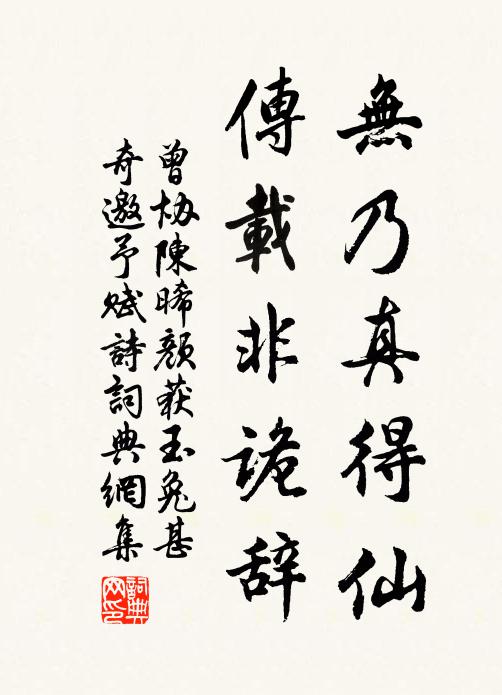 無乃真得仙
傳載非詭辞
曾協陳晞顔获玉兔甚
奇邀予赋詩詞典網集
詞典
网印